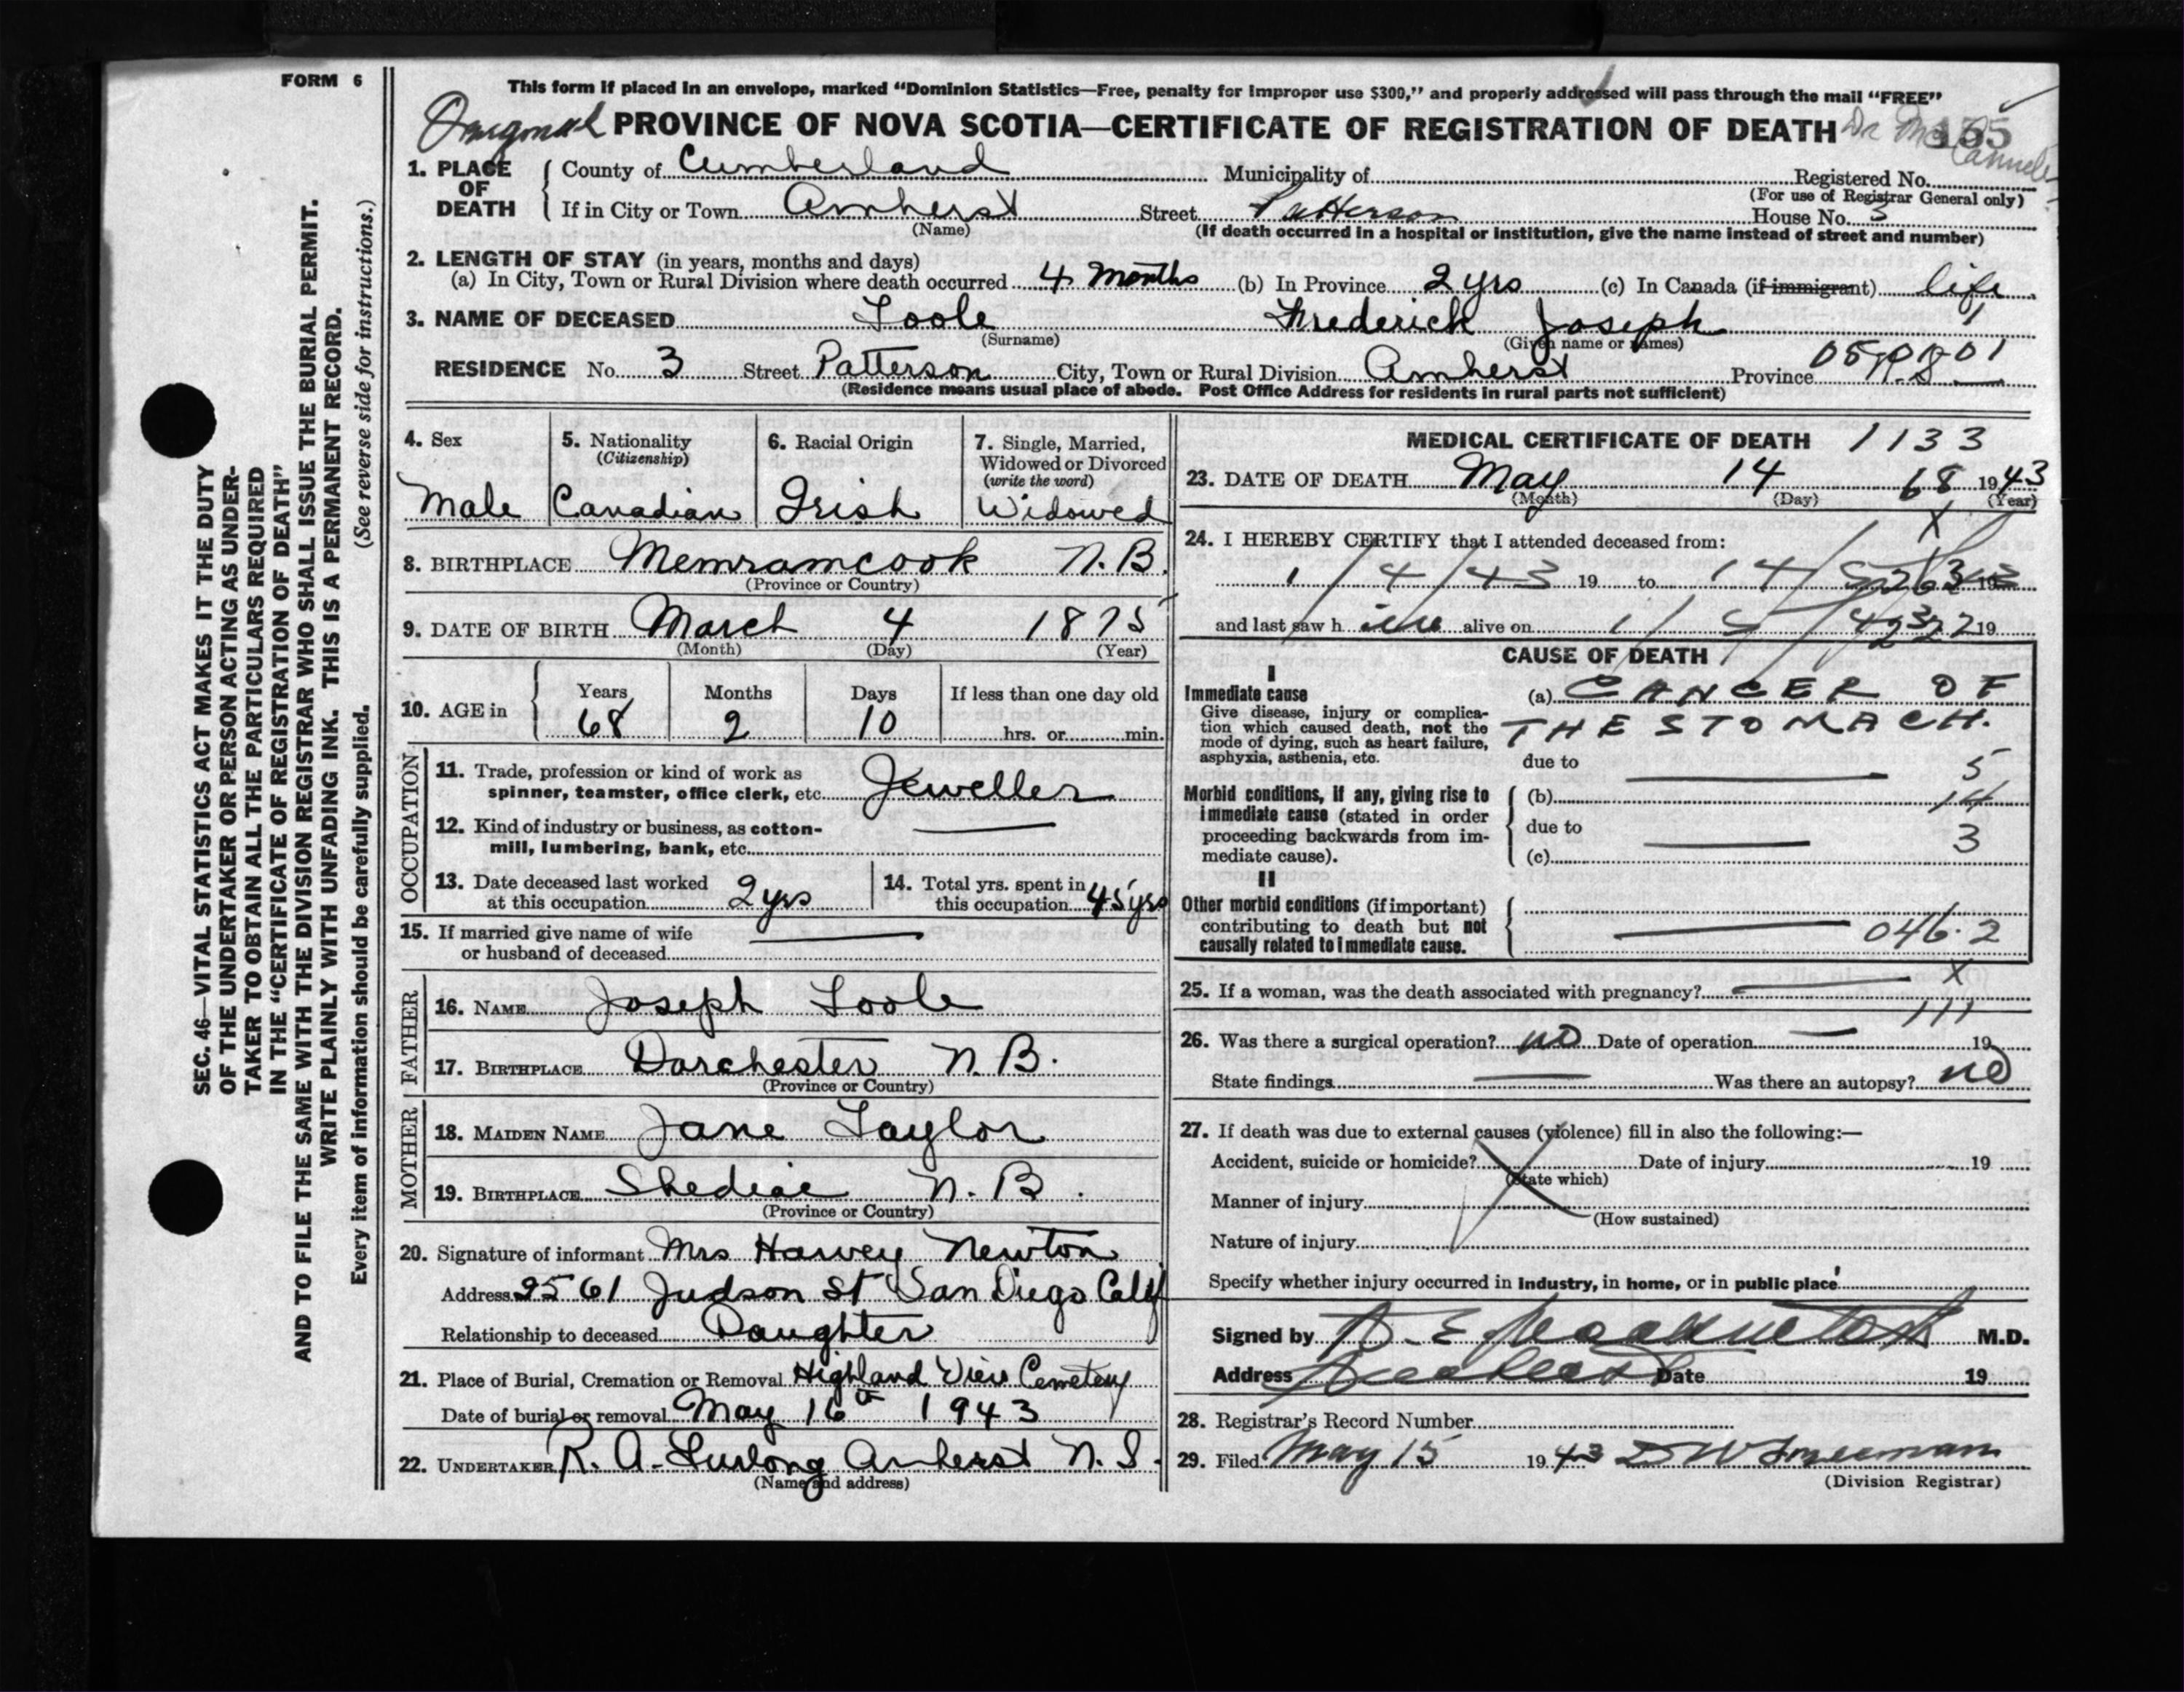 FORM 6
This form if placed in an envelope, marked "Dominion Statistics—Free, penalty for improper use $300," and properly addressed will pass through the mail "FREE"
PROVINCE OF NOVA SCOTIA—CERTIFICATE OF REGISTRATION OF DEATH
1. PLACE OF DEATH
County of Cumberland Municipality of Registered No.
(For use of Registrar General only)
If in City or Town Amherst Street Patterson House No. 3
(Name) (If death occurred in a hospital or institution, give the name instead of street and number)
2. LENGTH OF STAY (in years, months and days)
(a) In City, Town or Rural Division where death occurred 4 Months (b) In Province 2 yrs (c) In Canada (if immigrant) life
3. NAME OF DECEASED Toole Frederick Joseph
(Surname) (Given name or names)
RESIDENCE No. 3 Street Patterson City, Town or Rural Division Amherst Province N.S.
(Residence means usual place of abode. Post Office Address for residents in rural parts not sufficient)
4. Sex
Male
5. Nationality
(Citizenship)
Canadian
6. Racial Origin
Irish
7. Single, Married,
Widowed or Divorced
(write the word)
Widowed
8. BIRTHPLACE Memramcook N.B.
(Province or Country)
9. DATE OF BIRTH March 4 1875
(Month) (Day) (Year)
10. AGE in
Years Months Days If less than one day old
68 2 10 hrs. or min.
OCCUPATION
11. Trade, profession or kind of work as
spinner, teamster, office clerk, etc. Jeweller
12. Kind of industry or business, as cotton-
mill, lumbering, bank, etc.
13. Date deceased last worked
at this occupation 2 yrs
14. Total yrs. spent in
this occupation 45 yrs
15. If married give name of wife
or husband of deceased
FATHER
16. NAME Joseph Toole
17. BIRTHPLACE Dorchester N.B.
(Province or Country)
MOTHER
18. MAIDEN NAME Jane Taylor
19. BIRTHPLACE Shediac N.B.
(Province or Country)
20. Signature of informant Mrs Harvey Newton
Address 2561 Judson St San Diego Calif
Relationship to deceased Daughter
21. Place of Burial, Cremation or Removal Highland View Cemetery
Date of burial or removal May 16th 1943
22. UNDERTAKER R. A. Furlong Amherst N.S.
(Name and address)
MEDICAL CERTIFICATE OF DEATH 1133
23. DATE OF DEATH May 14 68 1943
(Month) (Day) (Year)
24. I HEREBY CERTIFY that I attended deceased from:
1/4/43 19 to 14/5 19
and last saw h im alive on 1/5/ 19
CAUSE OF DEATH
I
Immediate cause
Give disease, injury or complica-
tion which caused death, not the
mode of dying, such as heart failure,
asphyxia, asthenia, etc.
(a) CANCER OF
THE STOMACH.
due to 5
Morbid conditions, if any, giving rise to
immediate cause (stated in order
proceeding backwards from im-
mediate cause).
(b) 14
due to 3
(c)
II
Other morbid conditions (if important)
contributing to death but not
causally related to immediate cause.
046.2
X
25. If a woman, was the death associated with pregnancy?
111
26. Was there a surgical operation? no Date of operation 19
State findings Was there an autopsy? no
27. If death was due to external causes (violence) fill in also the following:—
Accident, suicide or homicide? Date of injury 19
(State which)
Manner of injury
(How sustained)
Nature of injury
Specify whether injury occurred in industry, in home, or in public place
Signed by M.D.
Address Date 19
28. Registrar's Record Number
29. Filed May 15 1943
(Division Registrar)
SEC. 46—VITAL STATISTICS ACT MAKES IT THE DUTY
OF THE UNDERTAKER OR PERSON ACTING AS UNDER-
TAKER TO OBTAIN ALL THE PARTICULARS REQUIRED
IN THE "CERTIFICATE OF REGISTRATION OF DEATH"
AND TO FILE THE SAME WITH THE DIVISION REGISTRAR WHO SHALL ISSUE THE BURIAL PERMIT.
WRITE PLAINLY WITH UNFADING INK. THIS IS A PERMANENT RECORD.
Every item of information should be carefully supplied. (See reverse side for instructions.)